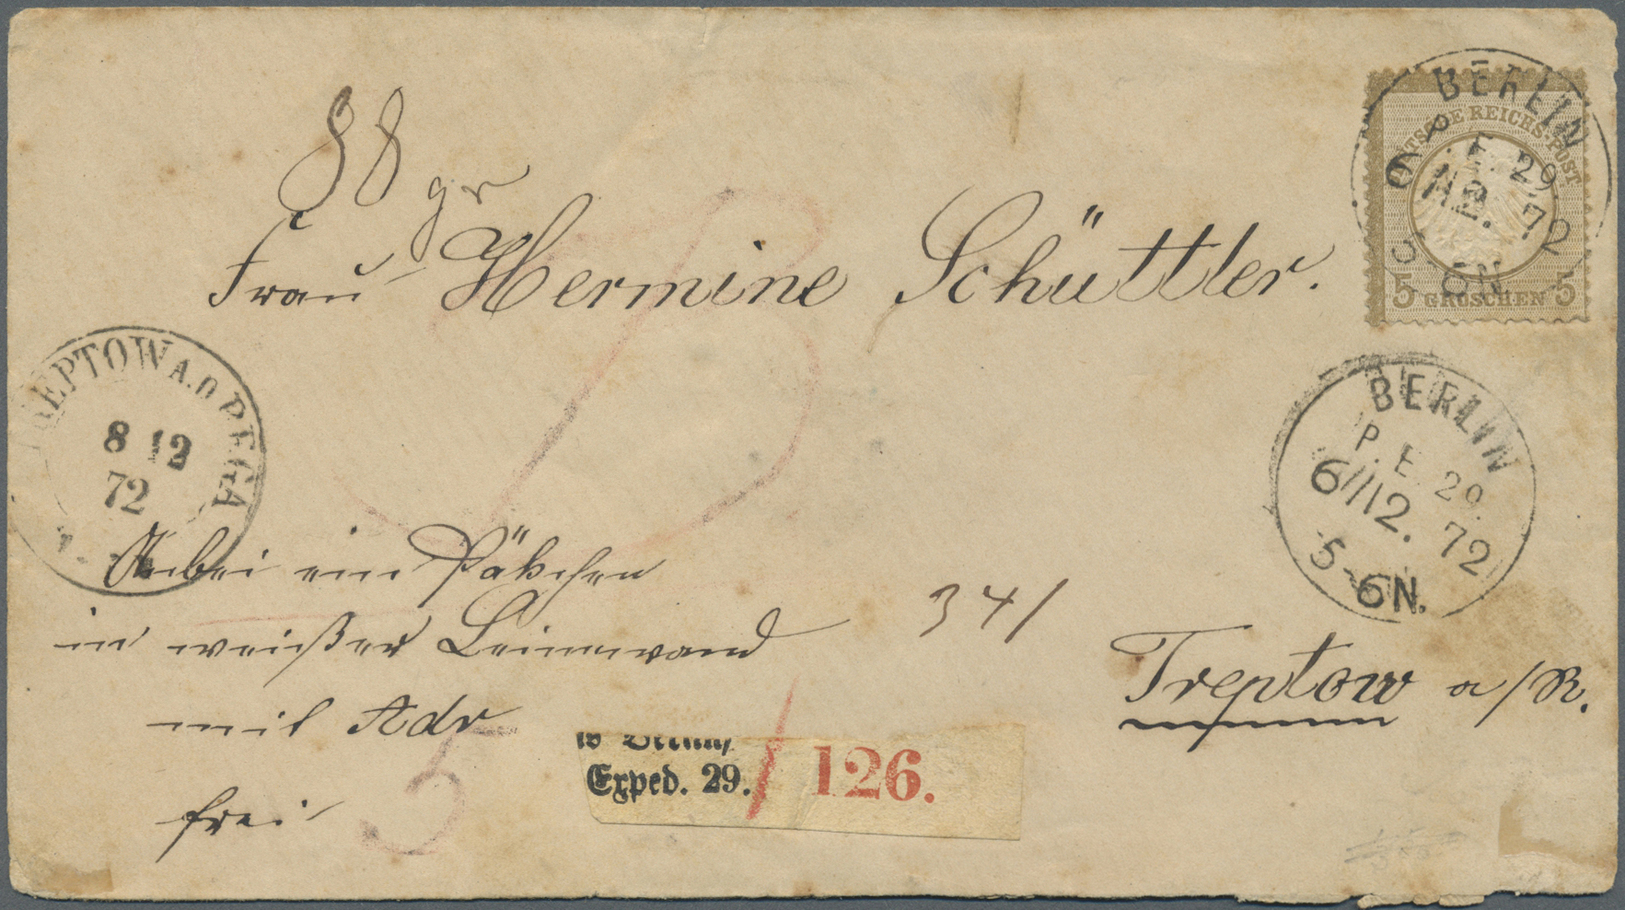 88 gr
Frau Hermine Schüttler.
BERLIN
P. E. 29.
72
6N
DEUTSCHE REICHS-POST
5 GROSCHEN 5
TREPTOW A.D REGA
8 12
72
BERLIN
P. E. 29.
6/12. 72
5-6N.
Anbei ein Päkchen
in weißer Leinenwand
mit Adr
frei
5
341
Treptow a/R.
Berlin,
Exped. 29. 126.